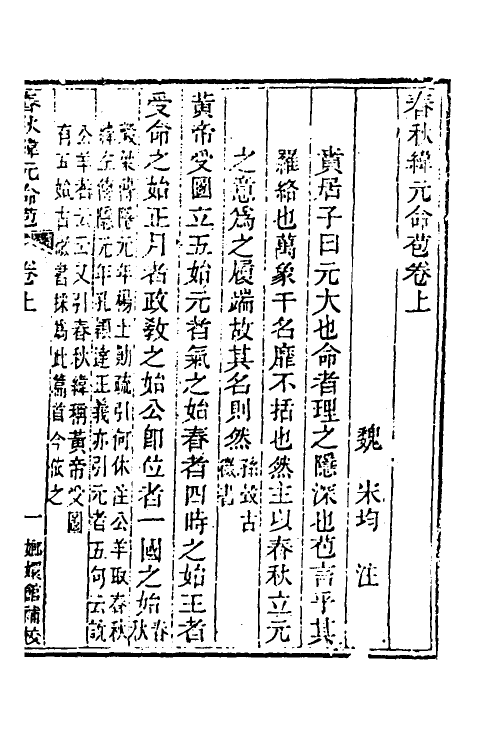 春秋緯元命苞卷上
魏　宋均　注
賁居子曰元大也命者理之隱深也苞言乎其
羅絡也萬象千名靡不括也然主以春秋立元
之意爲之履端故其名則然孫瑴古
微書
黃帝受圖立五始元者氣之始春者四時之始王者
受命之始正月者政教之始公卽位者一國之始春
秋
榖梁傳隱元年楊士勛疏引何休注公羊取春秋
緯左傳隱元年孔穎達正義亦引元者五句云說
公羊者云云又引春秋緯稱黃帝受圖
有五始古微書採爲此篇首今依之
春秋緯元命苞　卷上　一　嫏嬛館補校